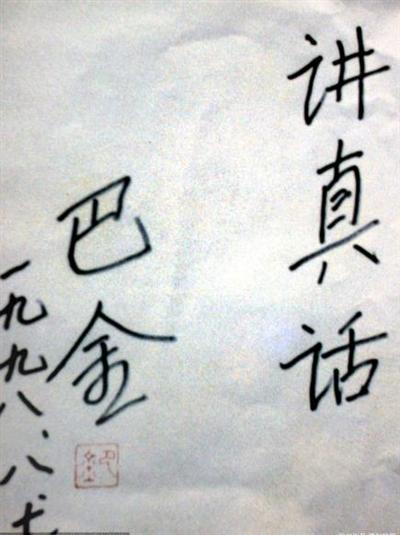 讲真话
巴金
一九九八.八.七